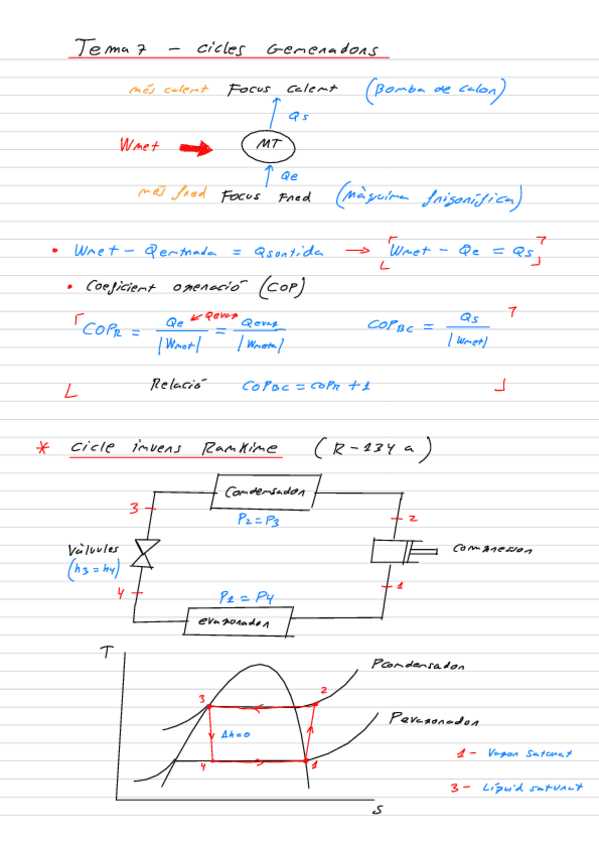 Tema 7 - Cicles Generadors
més calent Focus Calent (Bomba de calor)
Qs
Wnet → MT
Qe
més fred Focus Fred (Màquina frigorífica)
• Wnet - Qentrada = Qsortida → [Wnet - Qe = Qs]
• Coeficient operació (COP)
COPR = Qe / |Wnet| = Qevap / |Wneta| ← Qevap COPBC = Qs / |Wnet|
Relació COPBC = COPR + 1
* Cicle invers Rankine (R-134 a)
Condensador
3
P2 = P3
2
Vàlvules
(h3 = h4)
Compressor
4
P1 = P4
1
evaporador
T
Pcondensador
3
2
Pevaporador
Δh=0
1 - Vapor Saturat
4
1
3 - Líquid saturat
S